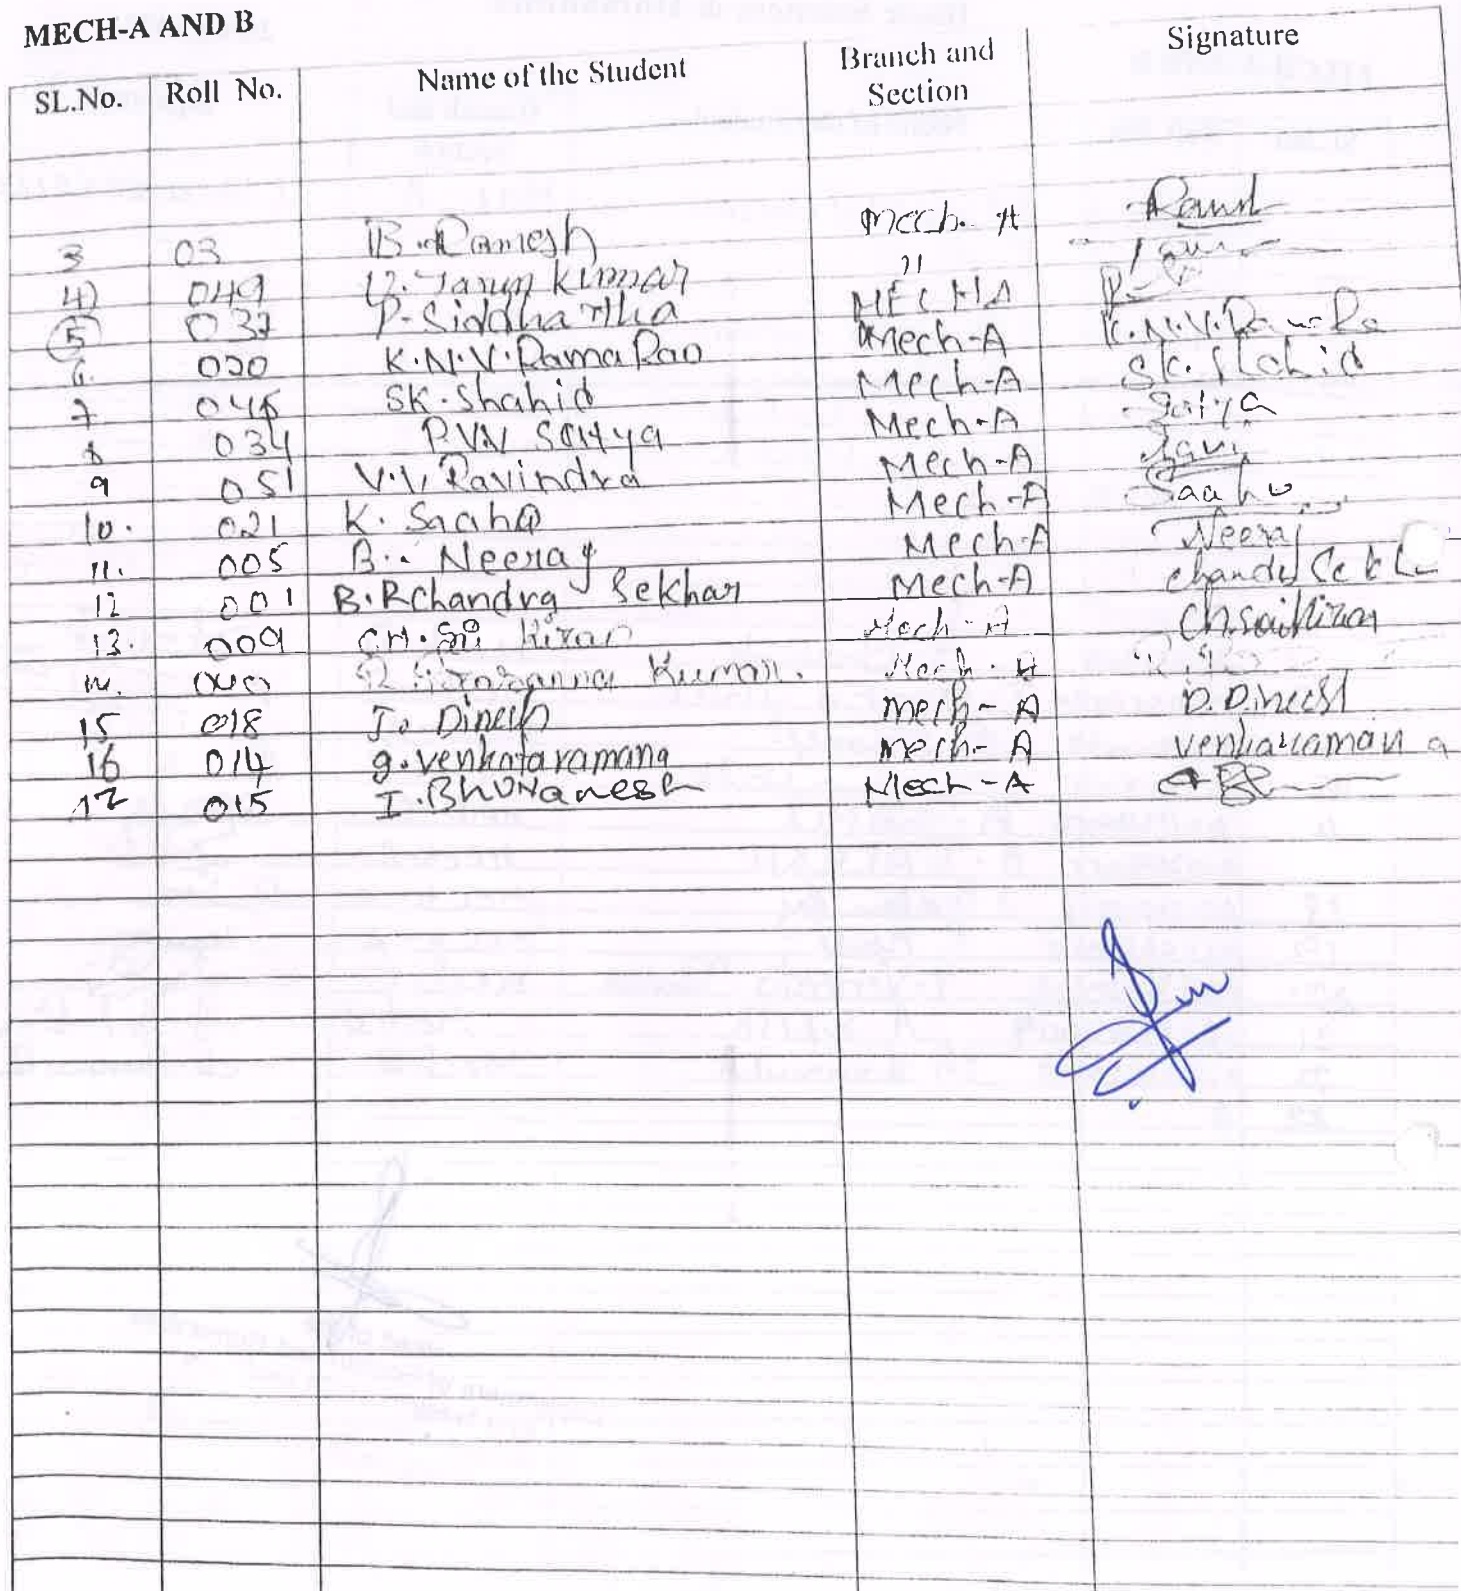 MECH-A AND B
SL.No. Roll No. Name of the Student Branch and Section Signature
3 03 B. Ramesh Mech. A
4) 049 Tarun Kumar "
5 037 P. Siddhartha MECH A
6. 020 K.N.V. Rama Rao Mech-A K.N.V. Rama Ra
7 045 SK. Shahid Mech-A SK. Shahid
8 034 P.V.N Satya Mech-A Satya
9 051 V.V. Ravindra Mech-A Ravi
10. 021 K. Saaho Mech-A Saaho
11. 005 B. Neeraj Mech-A Neeraj
12 001 B.R Chandra Sekhar Mech-A
13. 009 CH. Sai Kiran Mech-A Ch. Sai Kiran
14. Kumar. Mech-A
15 018 J. Dinesh mech-A D. Dinesh
16 014 g. venkataramana mech-A venkataramana
17 015 I. Bhuvanesh Mech-A